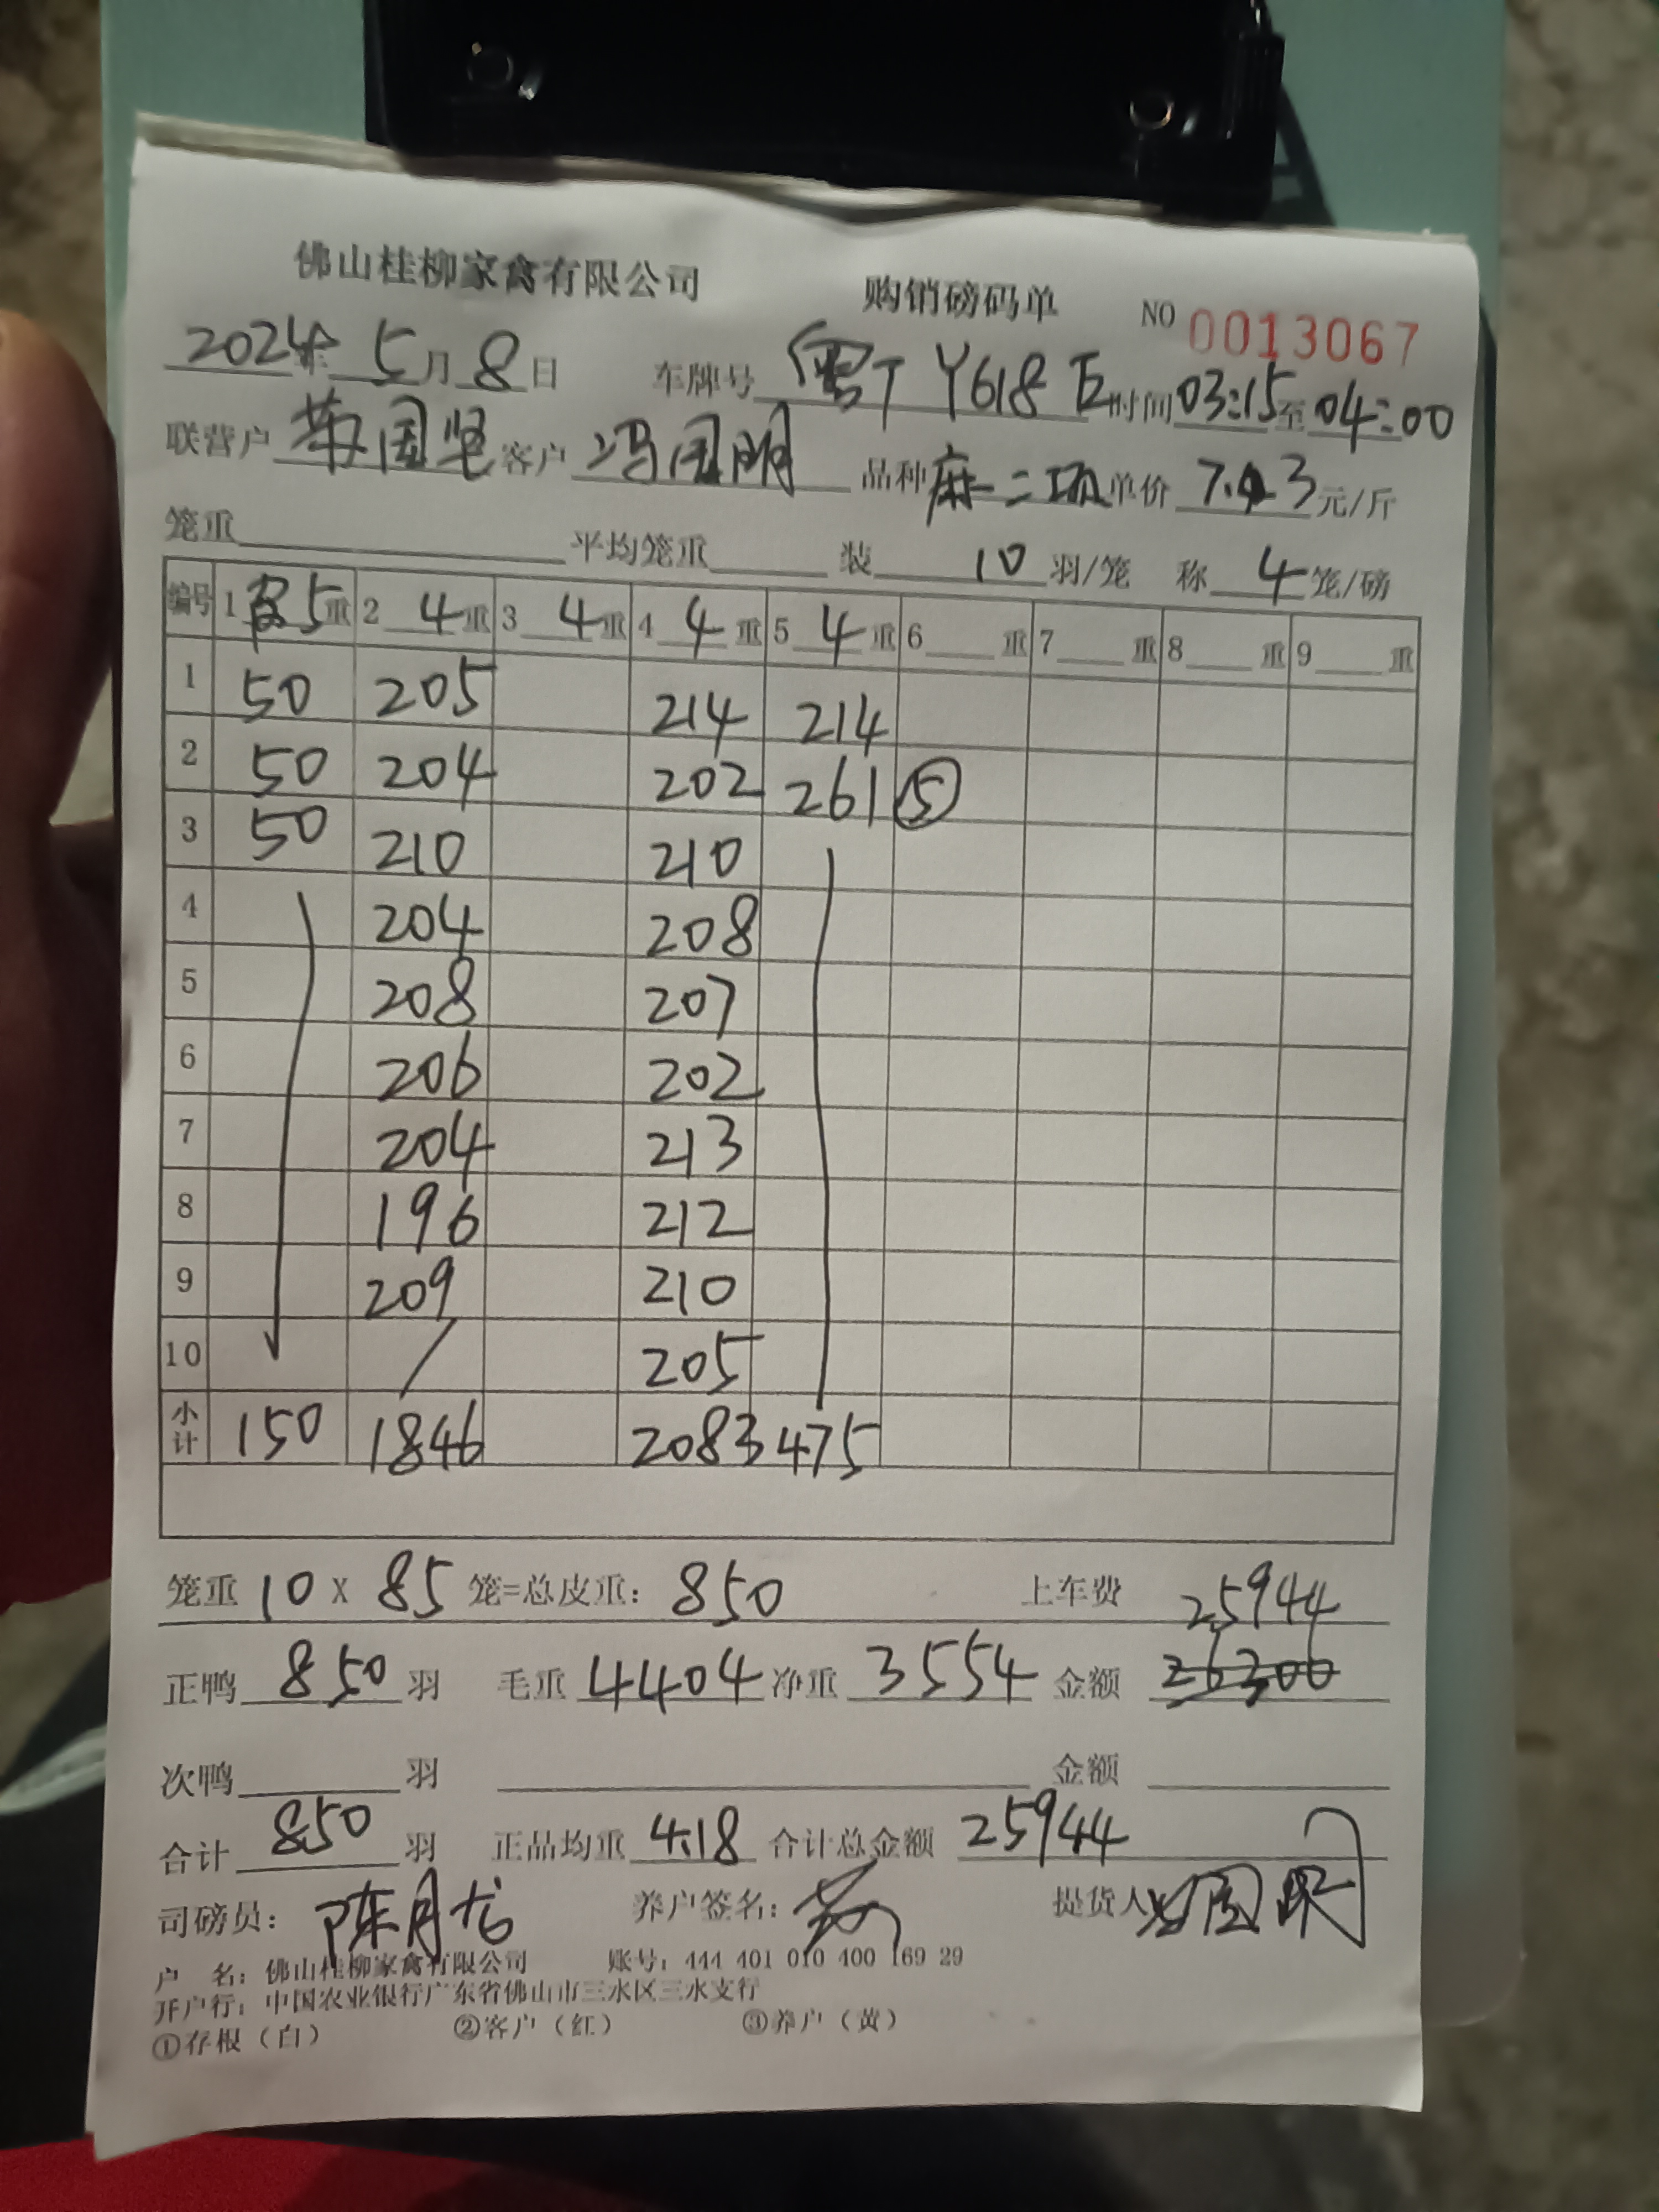 佛山桂柳家禽有限公司 购销磅码单 NO 0013067
2024年 5月 8日 车牌号 粤T Y618E 时间 03:15 至 04:00
联营户 国坚 客户 冯国明 品种 麻二 单价 7. 3 元/斤
笼重 平均笼重 装 10 羽/笼 称 4 笼/磅
编号 1 皮5重 2 4重 3 4重 4 4重 5 4重 6 重 7 重 8 重 9 重
1 50 205 214 214
2 50 204 202 261 ⑤
3 50 210 210
4 204 208
5 208 207
6 206 202
7 204 213
8 196 212
9 209 210
10 / 205
小计 150 1846 2083 475
笼重 10 X 85 笼=总皮重: 850 上车费 25944
正鸭 850 羽 毛重 4404 净重 3554 金额 26300
次鸭 羽 金额
合计 850 羽 正品均重 4.18 合计总金额 25944
司磅员: 陈月龙 养户签名: 提货人 冯国明
户 名: 佛山桂柳家禽有限公司 账号: 444 401 010 400 169 29
开户行: 中国农业银行广东省佛山市三水区三水支行
①存根(白) ②客户(红) ③养户(黄)